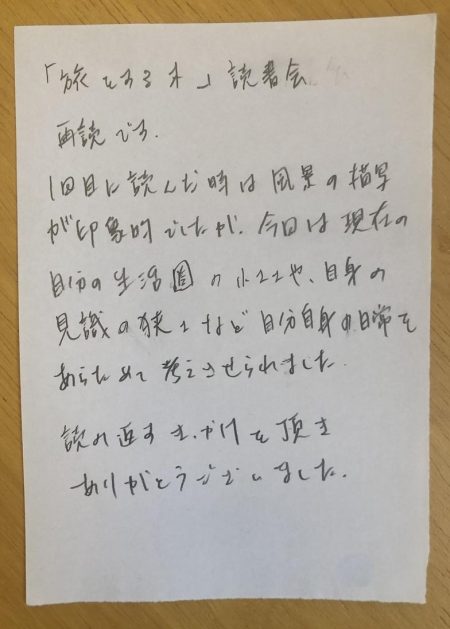 「旅をする木」読書会
再読です.
1回目に読んだ時は風景の描写
が印象的でしたが、今回は現在の
自分の生活圏の小ささや、自身の
見識の狭さなど自分自身の日常を
あらためて考えさせられました.
読み返すきっかけを頂き
ありがとうございました.